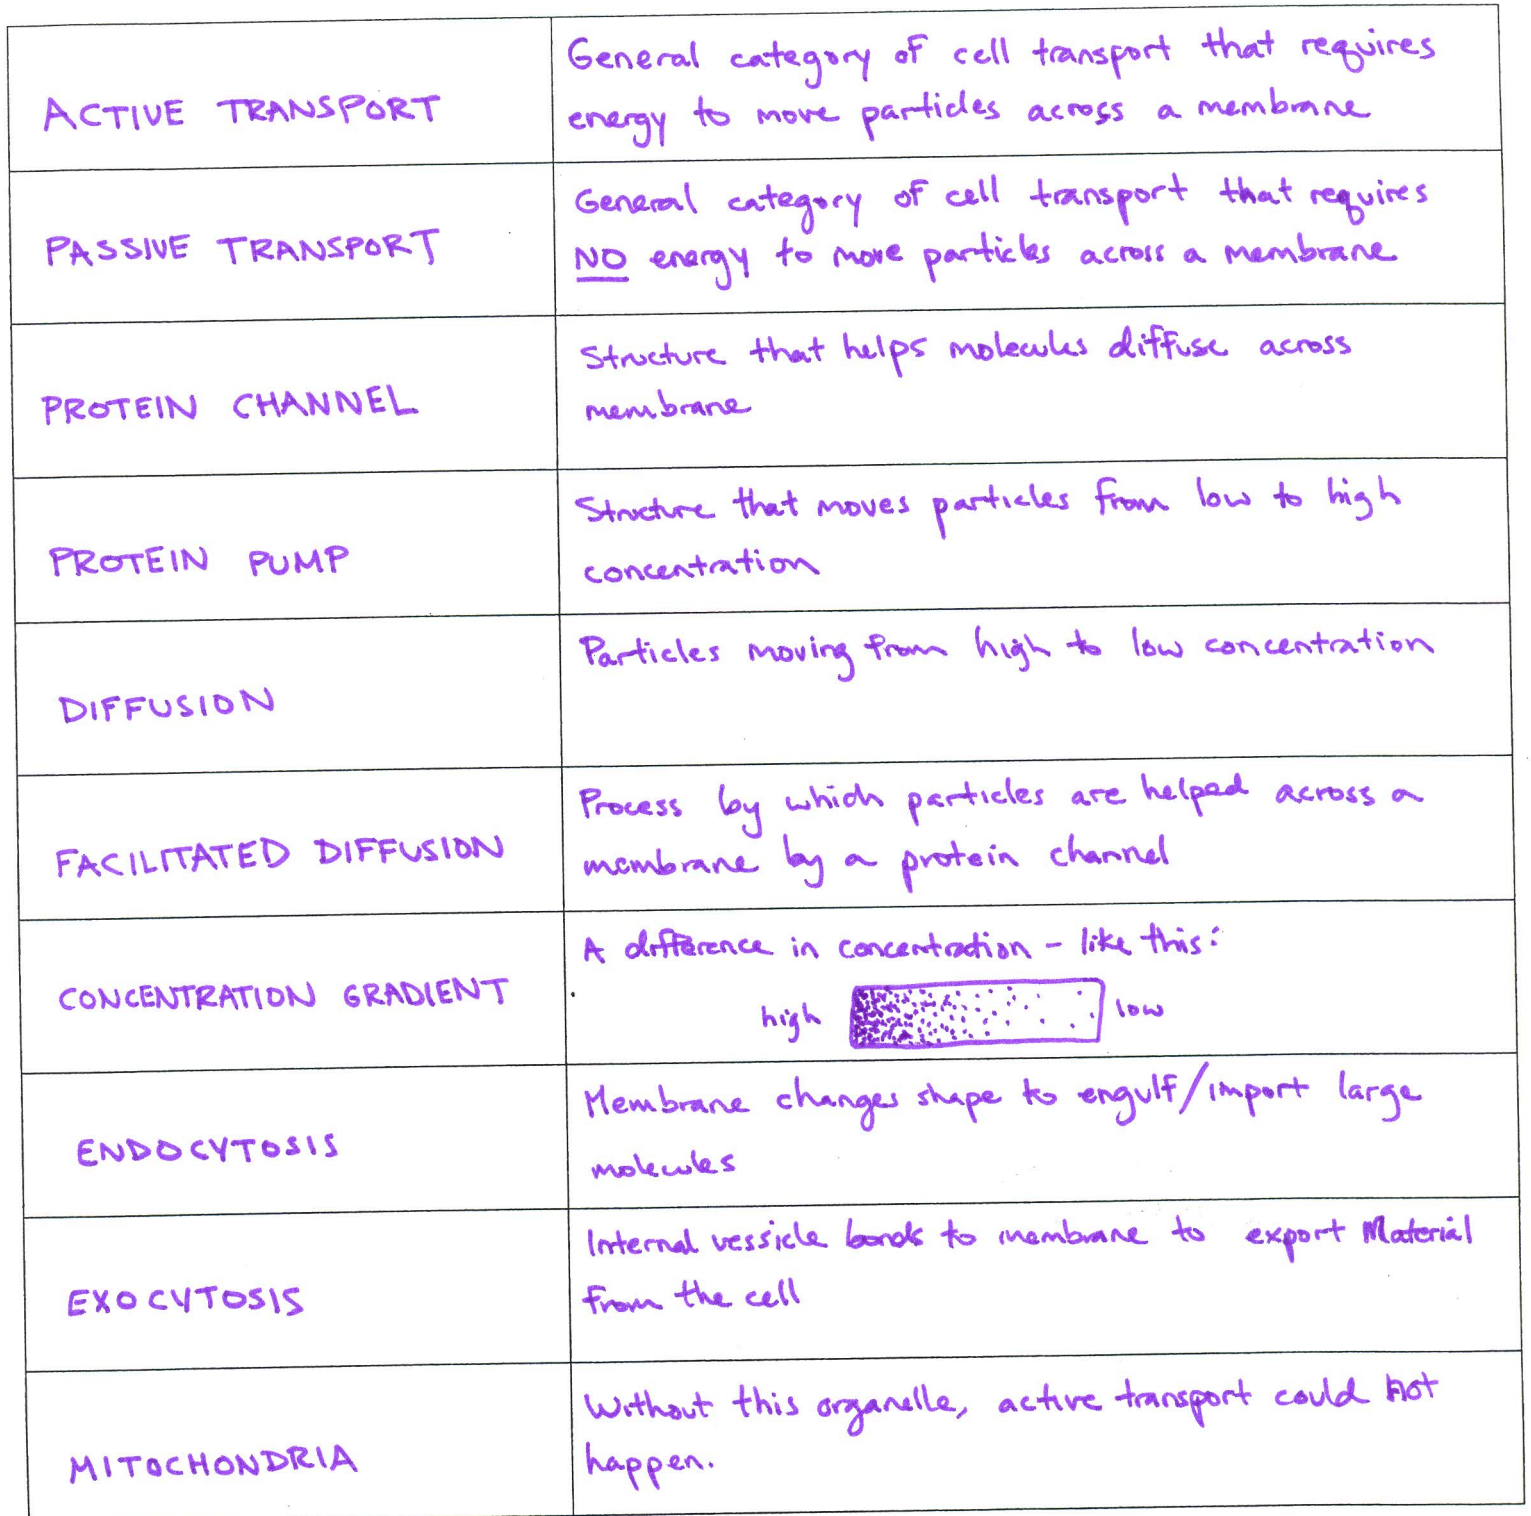 ACTIVE TRANSPORT
General category of cell transport that requires
energy to move particles across a membrane
PASSIVE TRANSPORT
General category of cell transport that requires
NO energy to move particles across a membrane
PROTEIN CHANNEL
Structure that helps molecules diffuse across
membrane
PROTEIN PUMP
Structure that moves particles from low to high
concentration
DIFFUSION
Particles moving from high to low concentration
FACILITATED DIFFUSION
Process by which particles are helped across a
membrane by a protein channel
CONCENTRATION GRADIENT
A difference in concentration - like this:
high low
ENDOCYTOSIS
Membrane changes shape to engulf/import large
molecules
EXOCYTOSIS
Internal vessicle bonds to membrane to export Material
from the cell
MITOCHONDRIA
Without this organelle, active transport could not
happen.